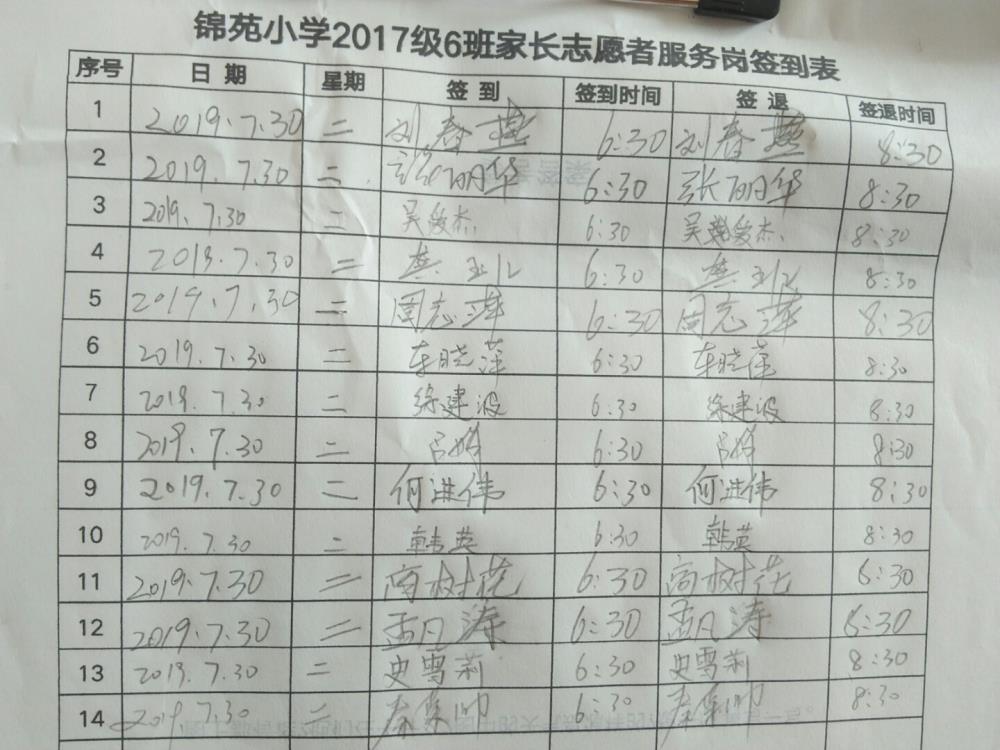 锦苑小学2017级6班家长志愿者服务岗签到表
序号 日期 星期 签到 签到时间 签退 签退时间
1 2019.7.30 二 刘春燕 6:30 刘春燕 8:30
2 2019.7.30 二 张丽华 6:30 张丽华 8:30
3 2019.7.30 二 吴俊杰 6:30 吴俊杰 8:30
4 2019.7.30 二 6:30 8:30
5 2019.7.30 二 周志萍 6:30 周志萍 8:30
6 2019.7.30 二 车晓萍 6:30 车晓萍 8:30
7 2019.7.30 二 徐建波 6:30 徐建波 8:30
8 2019.7.30 二 6:30 8:30
9 2019.7.30 二 何进伟 6:30 何进伟 8:30
10 2019.7.30 二 韩英 6:30 韩英 8:30
11 2019.7.30 二 高树花 6:30 高树花 8:30
12 2019.7.30 二 孟凡涛 6:30 孟凡涛 8:30
13 2019.7.30 二 史雪莉 6:30 史雪莉 8:30
14 2019.7.30 二 6:30 8:30